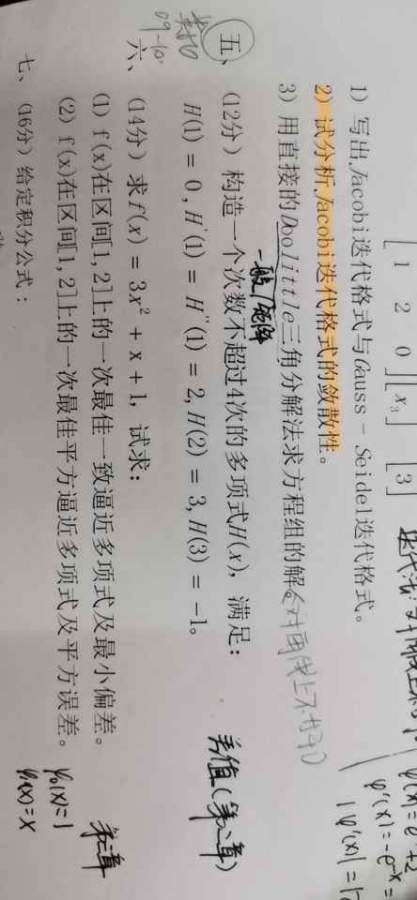 [1 2 0][x₃] [3]
1) 写出Jacobi迭代格式与Gauss-Seidel迭代格式。
2) 试分析Jacobi迭代格式的敛散性。
3) 用直接的Doolittle三角分解法求方程组的解。
五、(12分) 构造一个次数不超过4次的多项式H(x), 满足:
H(1) = 0, H'(1) = H''(1) = 2, H(2) = 3, H(3) = -1。
差值(第二章)
09-10
六、(14分) 求f(x) = 3x² + x + 1, 试求:
(1) f(x)在区间[1,2]上的一次最佳一致逼近多项式及最小偏差。
(2) f(x)在区间[1,2]上的一次最佳平方逼近多项式及平方误差。
φ₀(x)=1
φ₁(x)=x
七、(16分) 给定积分公式: